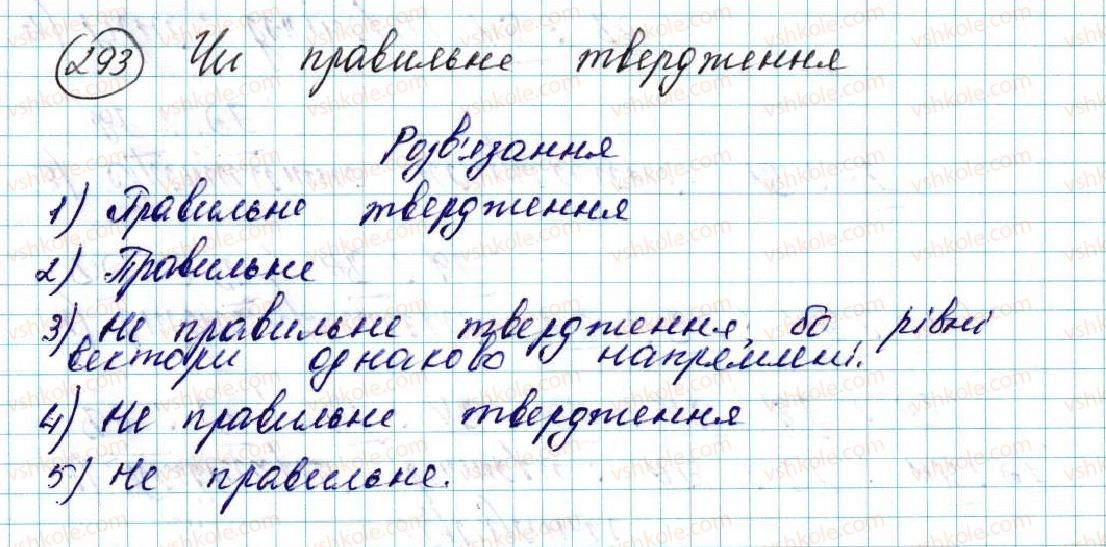 293 Чи правильне твердження
Розв'язання
1) Правильне твердження
2) Правильне
3) Не правильне твердження, бо рівні
вектори однаково напрямлені.
4) Не правильне твердження
5) Не правильне.